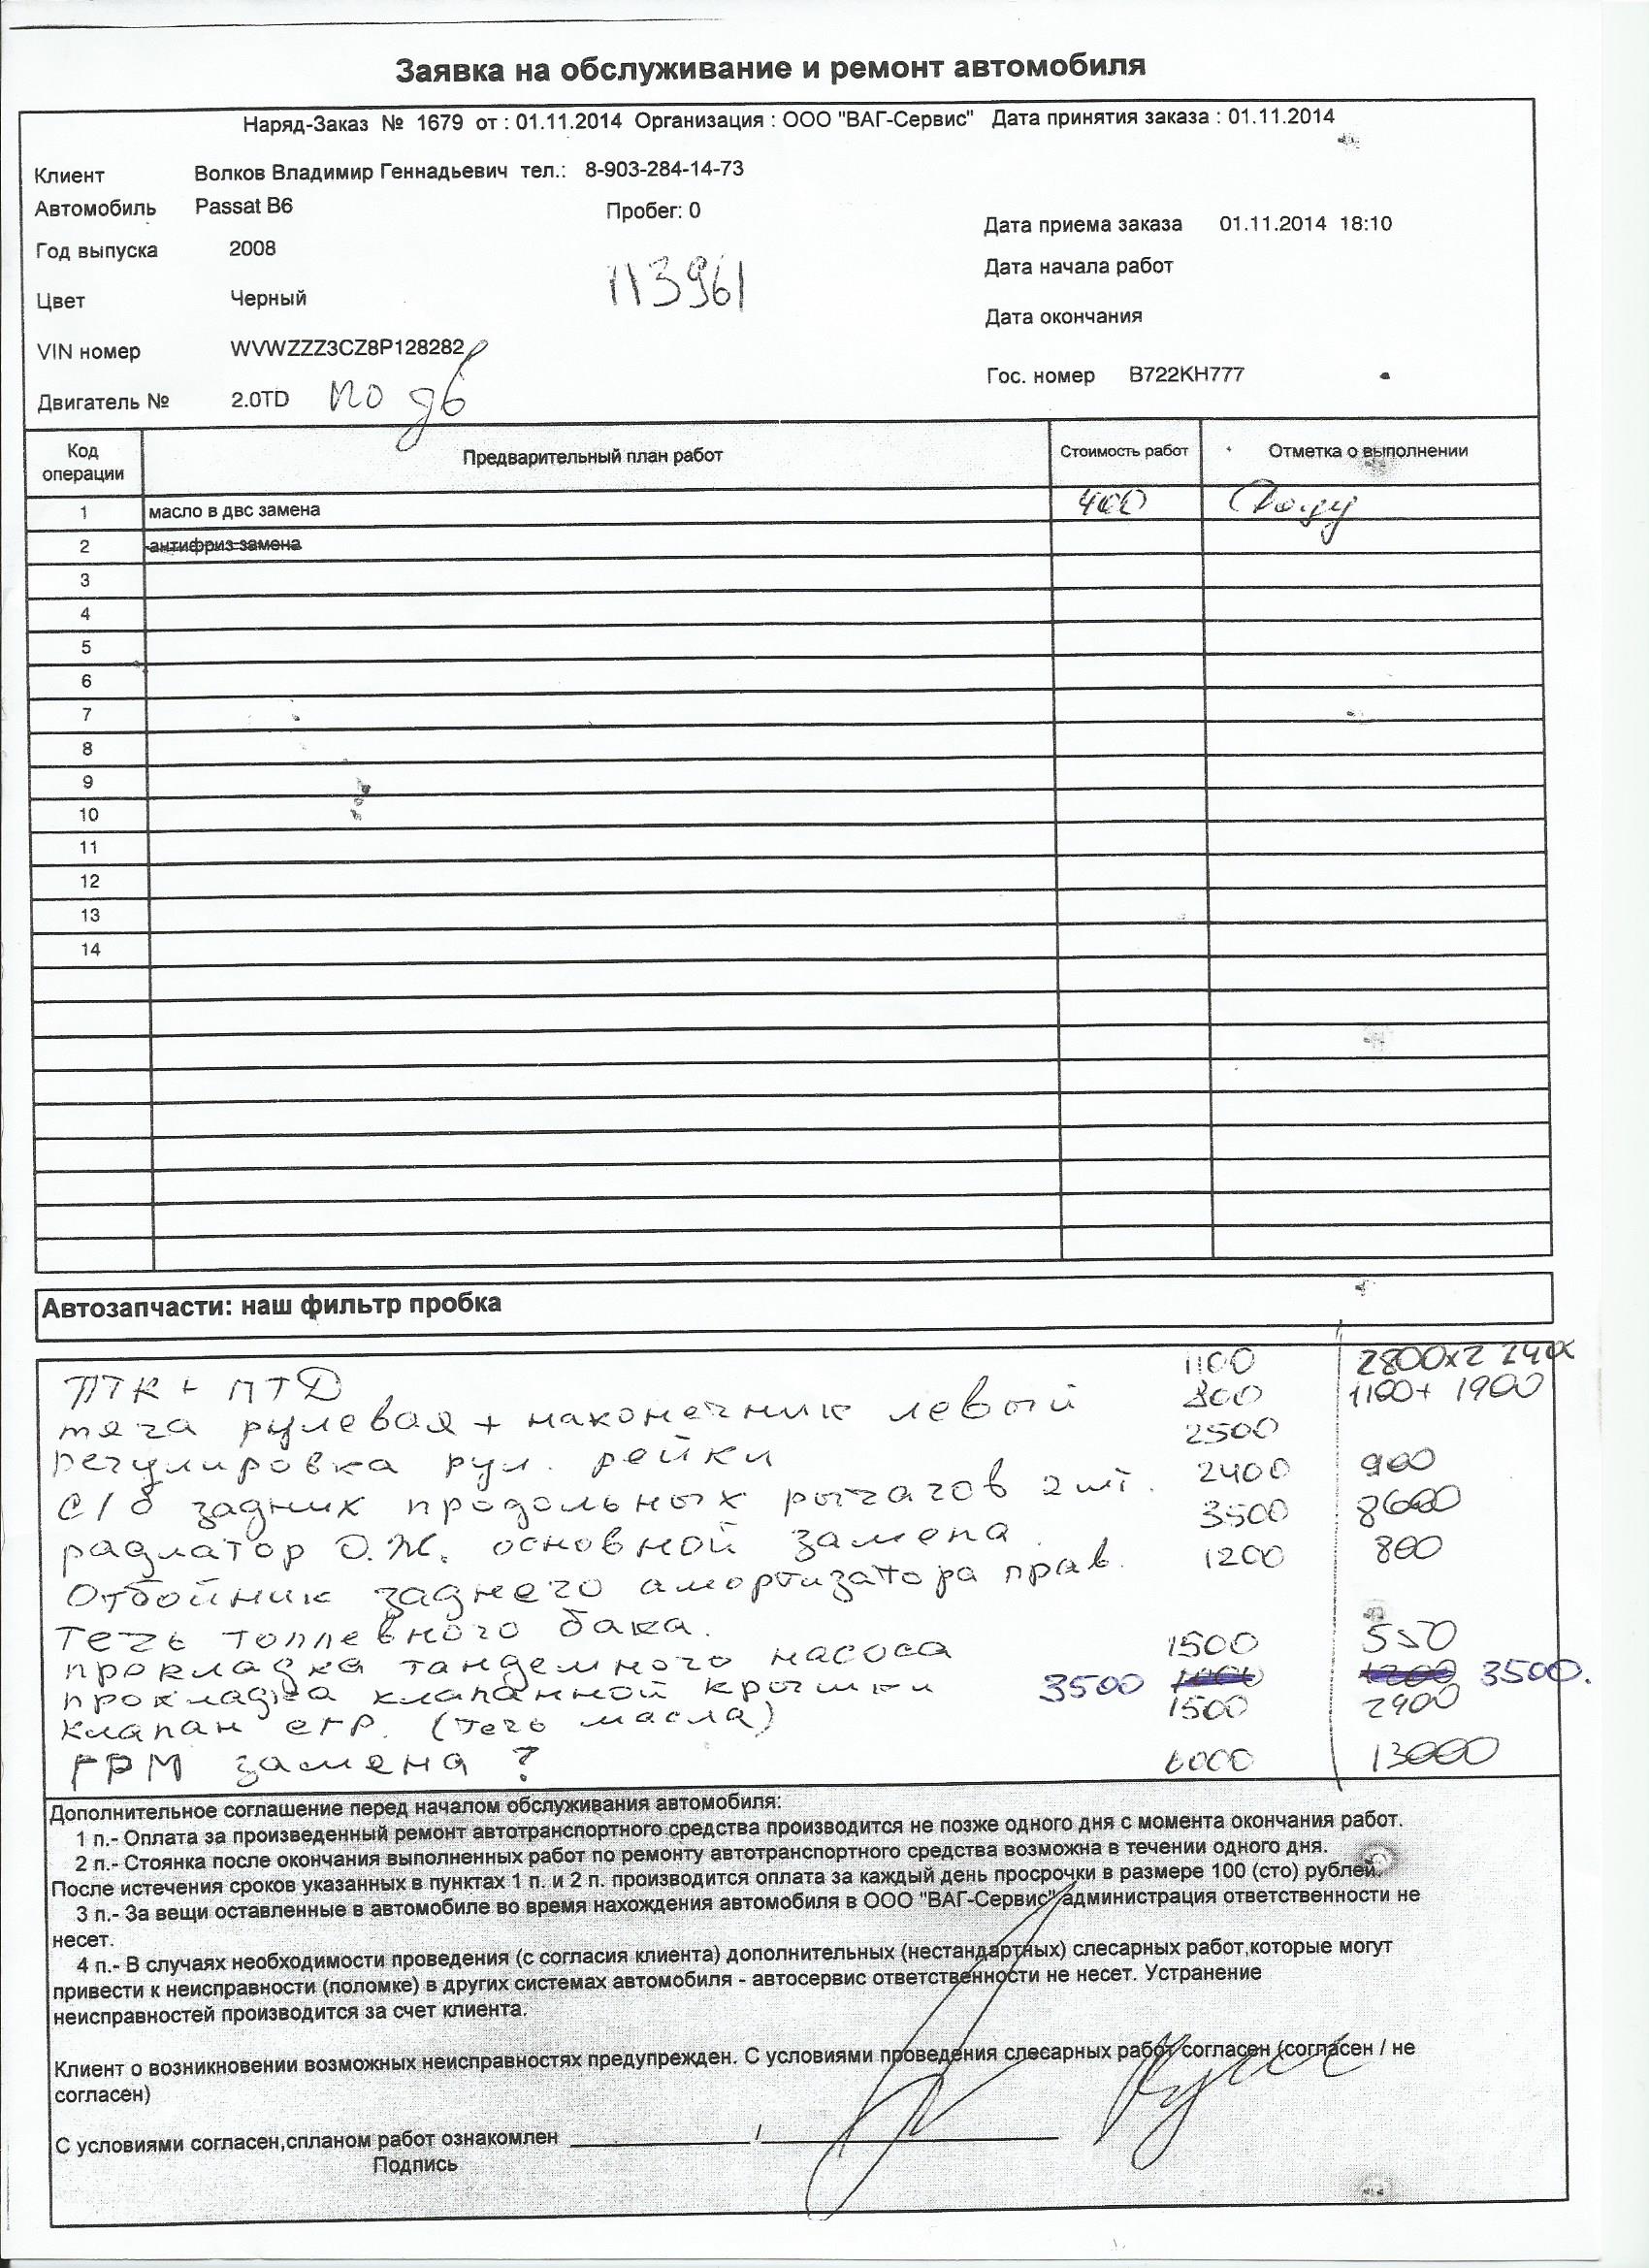 Заявка на обслуживание и ремонт автомобиля
Наряд-Заказ № 1679 от : 01.11.2014 Организация : ООО "ВАГ-Сервис" Дата принятия заказа : 01.11.2014
Клиент Волков Владимир Геннадьевич тел.: 8-903-284-14-73
Автомобиль Passat B6 Пробег: 0
Дата приема заказа 01.11.2014 18:10
Год выпуска 2008
113961
Дата начала работ
Цвет Черный
Дата окончания
VIN номер WVWZZZ3CZ8P128282
Гос. номер В722КН777
Двигатель № 2.0TD по дв
Код операции Предварительный план работ Стоимость работ Отметка о выполнении
1 масло в двс замена 400
2 антифриз замена
3
4
5
6
7
8
9
10
11
12
13
14
Автозапчасти: наш фильтр пробка
ПТК + ПТД 1100 2800х2
тяга рулевая + наконечник левый 800 1100+ 1900
регулировка рул. рейки 2500
С/б задних продольных рычагов 2 шт. 2400 900
радиатор О.Ж. основной замена 3500 8600
Отбойник заднего амортизатора прав. 1200 800
Течь топливного бака.
прокладка тандемного насоса 1500 550
прокладка клапанной крышки 3500 3500.
клапан егр. (течь масла) 1500 2900
ГРМ замена ? 6000 13000
Дополнительное соглашение перед началом обслуживания автомобиля:
1 п.- Оплата за произведенный ремонт автотранспортного средства производится не позже одного дня с момента окончания работ.
2 п.- Стоянка после окончания выполненных работ по ремонту автотранспортного средства возможна в течении одного дня.
После истечения сроков указанных в пунктах 1 п. и 2 п. производится оплата за каждый день просрочки в размере 100 (сто) рублей.
3 п.- За вещи оставленные в автомобиле во время нахождения автомобиля в ООО "ВАГ-Сервис" администрация ответственности не
несет.
4 п.- В случаях необходимости проведения (с согласия клиента) дополнительных (нестандартных) слесарных работ,которые могут
привести к неисправности (поломке) в других системах автомобиля - автосервис ответственности не несет. Устранение
неисправностей производится за счет клиента.
Клиент о возникновении возможных неисправностях предупрежден. С условиями проведения слесарных работ согласен (согласен / не
согласен)
С условиями согласен,спланом работ ознакомлен ______________/______________________
Подпись